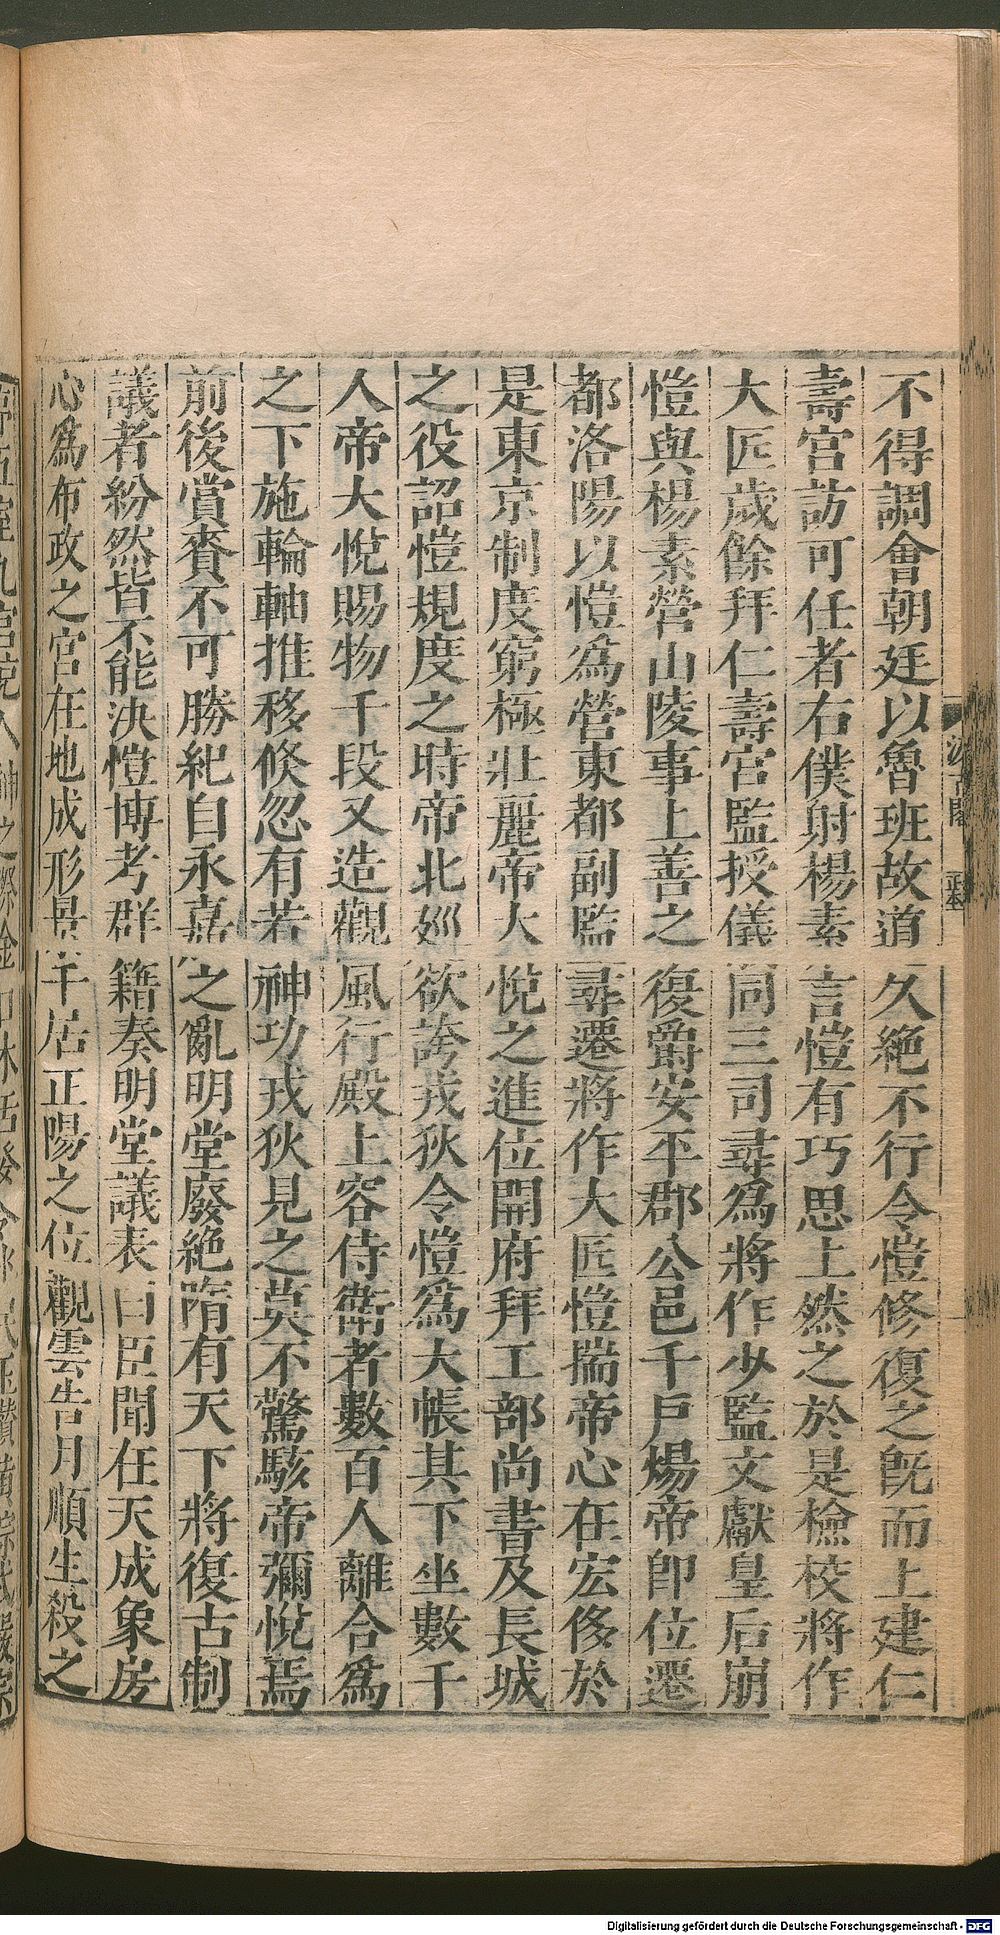 不得調會朝廷以魯班故道久絶不行令愷修復之既而上建仁
壽宮訪可任者右僕射楊素言愷有巧思上然之於是檢校將作
大匠歲餘拜仁壽宮監授儀同三司尋爲將作少監文獻皇后崩
愷與楊素營山陵事上善之復爵安平郡公邑千戸煬帝卽位遷
都洛陽以愷爲營東都副監尋遷將作大匠愷揣帝心在宏侈於
是東京制度窮極壯麗帝大悅之進位開府拜工部尚書及長城
之役詔愷規度之時帝北廵欲誇戎狄令愷爲大帳其下坐數千
人帝大悅賜物千段又造觀風行殿上容侍衛者數百人離合爲
之下施輪軸推移倏忽有若神功戎狄見之莫不驚駭帝彌悅焉
前後賞賚不可勝紀自永嘉之亂明堂廢絶隋有天下將復古制
議者紛然皆不能決愷博考群籍奏明堂議表曰臣聞在天成象房
心爲布政之宮在地成形景午居正陽之位觀雲告月順生殺之
汲古閣
Digitalisierung gefördert durch die Deutsche Forschungsgemeinschaft - DFG